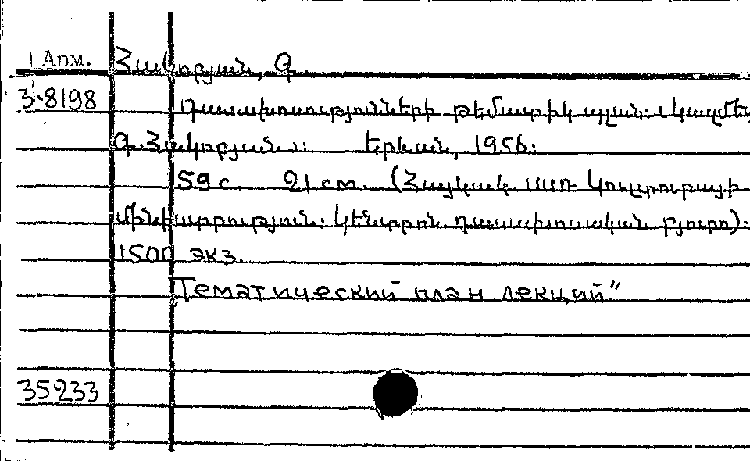 1 Арм. Հակոբյան, Գ.
3-8198 Դասախոսությունների թեմատիկ պլան: (Կազմեց
Գ. Հակոբյան): Երևան, 1956:
59 с. 21 cm. (Հայկական ՍՍՌ Կուլտուրայի
մինիստրություն: Կենտրոն. դասախոսական բյուրո):
1500 экз.
"Тематический план лекций"
35233